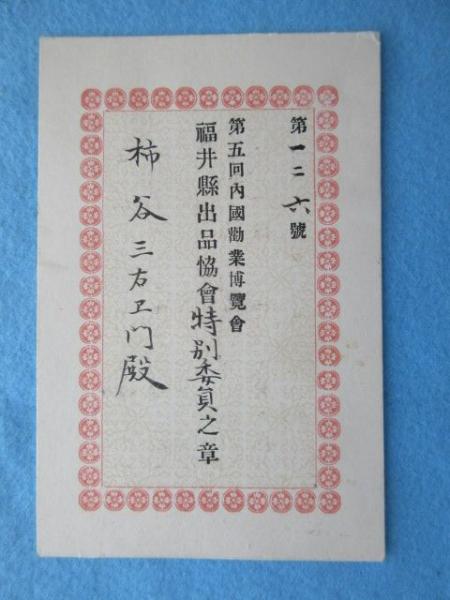 第一二六號
第五回內國勸業博覽會
福井縣出品協會特別委員之章
柿谷三右卫门殿